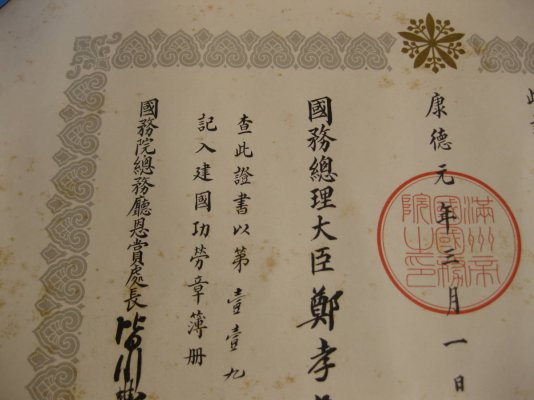 康德元年三月一日
滿州帝
國國務
院之印
國務總理大臣 鄭孝
查此證書以第壹壹九
記入建國功勞章簿冊
國務院總務廳恩賞處長 皆川